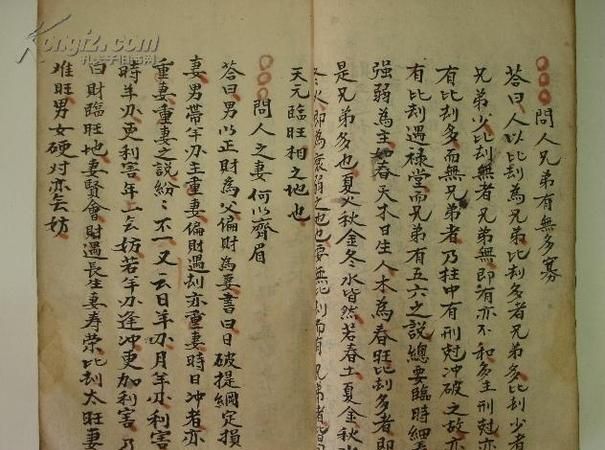 問人兄弟有無多寡
答曰人以比刦為兄弟比刦多者兄弟多比刦少者
兄弟少比刦無者兄弟無即有亦不和多主刑尅亦
有比刦多而無兄弟者乃柱中有刑尅冲破之故亦
有比刦遇禄堂而兄弟有五六之說總要臨時細看
強弱為主如春天木日生人木為春旺比刦多者即
是兄弟多也夏火秋金冬水皆然若春土夏金秋
冬火即為衰弱之也要無比刦而有兄弟者皆
天元臨旺相之地也
問人之妻何以齊眉
答曰男以正財為父偏財為妻書曰日破提綱定損
妻男帶羊刃主重妻偏財遇刦亦重妻時日冲者亦
重妻重妻之說紛〻不一又云日羊刃月羊刃利害
時羊刃更利害年一些妨若羊刃逢冲更加利害乃
白財臨旺地妻賢會財遇長生妻寿荣比刦太旺妻
难旺男女硬对亦無妨
Kongfz.com
孔夫子旧书网